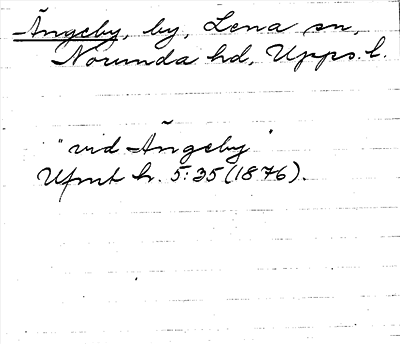 Ängeby, by, Lena sn,
Norunda hd, Upps. l.
"vid Ängeby"
Ufmt h. 5:35 (1876).